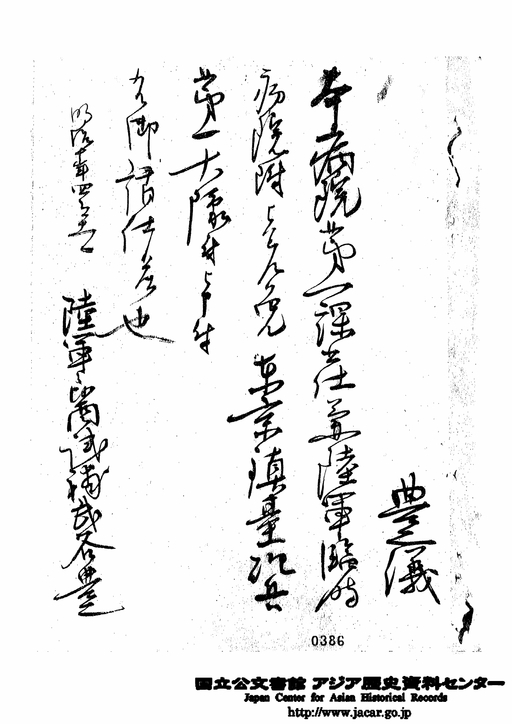 豊儀
本病院第一課出仕兼陸軍臨時
病院附 東京鎮臺砲兵
第一大隊附
右御請仕候也
明治十年四月
陸軍醫試補武谷豊
0386
国立公文書館 アジア歴史資料センター
Japan Center for Asian Historical Records
http://www.jacar.go.jp